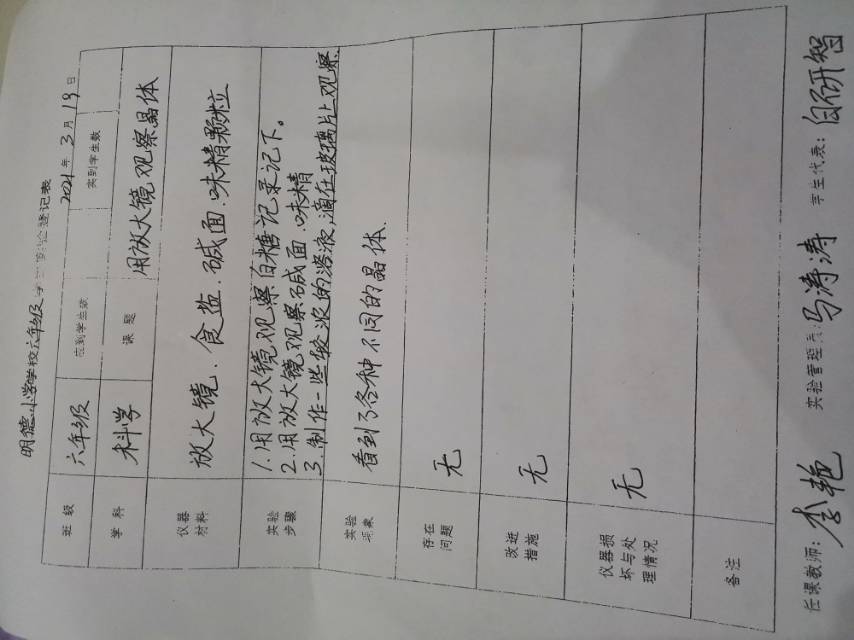 明德小学学校六年级学生实验登记表
2021年3月19日
班级 六年级 应到学生数 实到学生数
学科 科学 课题 用放大镜观察晶体
仪器材料 放大镜、食盐、碱面、味精颗粒
实验步骤 1.用放大镜观察白糖记录记下。
2.用放大镜观察碱面、味精
3.制作一些较浓的溶液,滴在玻璃片上观察.
实验现象 看到了各种不同的晶体.
存在问题 无
改进措施 无
仪器损坏与处理情况 无
备注
任课教师:李艳 实验管理员:马涛涛 学生代表:白研智